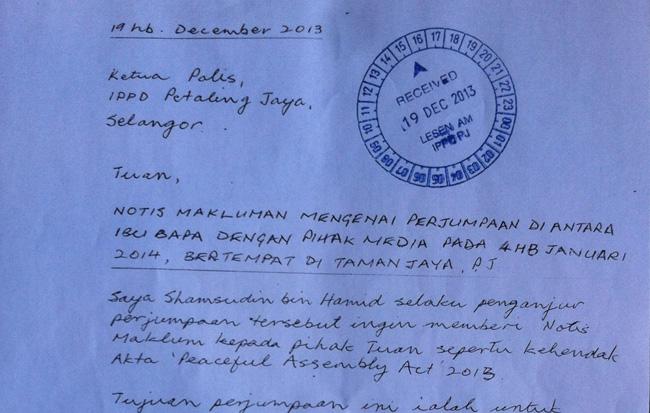 19hb. December 2013
Ketua Polis,
IPPD Petaling Jaya,
Selangor.
15 16 17 18 19 20 21 22 23 00 01 02 03 04 05 06 07 08 09 10 11 12 13 14
RECEIVED
19 DEC 2013
LESEN AM
IPPD PJ
Tuan,
NOTIS MAKLUMAN MENGENAI PERJUMPAAN DI ANTARA
IBU BAPA DENGAN PIHAK MEDIA PADA 4HB JANUARI
2014, BERTEMPAT DI TAMAN JAYA, PJ
Saya Shamsudin bin Hamid selaku penganjur
perjumpaan tersebut ingin memberi Notis
Maklum kepada pihak Tuan seperti kehendak
Akta 'Peaceful Assembly Act' 2013.
Tujuan perjumpaan ini ialah untuk